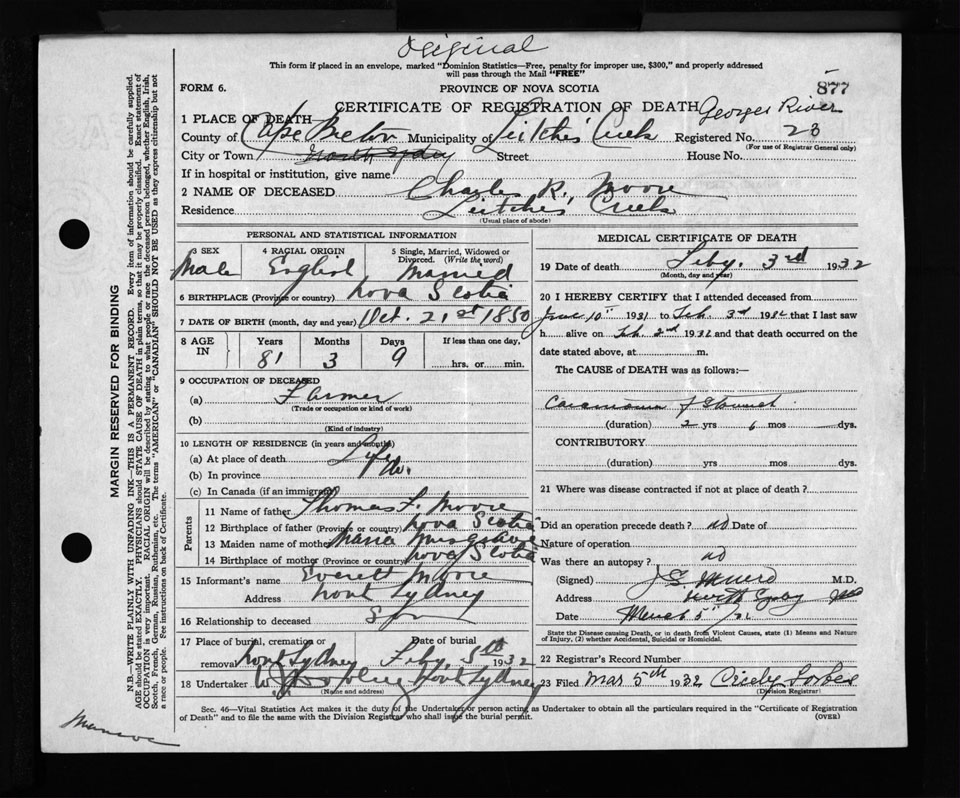 Original
This form if placed in an envelope, marked "Dominion Statistics—Free, penalty for improper use, $300," and properly addressed
will pass through the Mail "FREE"
FORM 6.
PROVINCE OF NOVA SCOTIA
877
CERTIFICATE OF REGISTRATION OF DEATH
Georges River
1 PLACE OF DEATH
County of Cape Breton Municipality of Leitches Creek Registered No. 23
(For use of Registrar General only)
City or Town North Sydney Street House No.
If in hospital or institution, give name
2 NAME OF DECEASED Charles R. Moore
Residence Leitches Creek
(Usual place of abode)
PERSONAL AND STATISTICAL INFORMATION
3 SEX 4 RACIAL ORIGIN 5 Single, Married, Widowed or Divorced. (Write the word)
Male English Married
6 BIRTHPLACE (Province or country) Nova Scotia
7 DATE OF BIRTH (month, day and year) Oct. 21st 1850
8 AGE IN Years Months Days If less than one day,
81 3 9 hrs. or min.
9 OCCUPATION OF DECEASED
(a) Farmer
(Trade or occupation or kind of work)
(b)
(Kind of industry)
10 LENGTH OF RESIDENCE (in years and months)
(a) At place of death Life
(b) In province do.
(c) In Canada (if an immigrant)
Parents
11 Name of father Thomas F. Moore
12 Birthplace of father (Province or country) Nova Scotia
13 Maiden name of mother Maria Musgrave
14 Birthplace of mother (Province or country) Nova Scotia
15 Informant's name Everett Moore
Address North Sydney
16 Relationship to deceased Son
17 Place of burial, cremation or removal North Sydney Date of burial Feby. 5th 1932
18 Undertaker North Sydney
(Name and address)
MEDICAL CERTIFICATE OF DEATH
19 Date of death Feby. 3rd 1932
(Month, day and year)
20 I HEREBY CERTIFY that I attended deceased from
June 10th 1931 to Feb. 3rd 1932 that I last saw
h alive on Feb. 2d 1932 and that death occurred on the
date stated above, at m.
The CAUSE of DEATH was as follows:—
Carcinoma of Stomach
(duration) 2 yrs 6 mos dys.
CONTRIBUTORY
(duration) yrs mos dys.
21 Where was disease contracted if not at place of death?
Did an operation precede death? no Date of
Nature of operation
Was there an autopsy? no
(Signed) M.D.
Address North Sydney
Date March 5th
State the Disease causing Death, or in death from Violent Causes, state (1) Means and Nature
of Injury, (2) whether Accidental, Suicidal or Homicidal.
22 Registrar's Record Number
23 Filed Mar 5th 1932
(Division Registrar)
Sec. 46—Vital Statistics Act makes it the duty of the Undertaker or person acting as Undertaker to obtain all the particulars required in the "Certificate of Registration
of Death" and to file the same with the Division Registrar who shall issue the burial permit.
(OVER)
MARGIN RESERVED FOR BINDING
N.B.—WRITE PLAINLY WITH UNFADING INK—THIS IS A PERMANENT RECORD. Every item of information should be carefully supplied.
AGE should be stated EXACTLY. PHYSICIANS should STATE CAUSE OF DEATH in plain terms, so that it may be properly classified. Exact statement of
OCCUPATION is very important. RACIAL ORIGIN will be described by stating to what people or race the deceased person belonged, whether English, Irish,
Scotch, French, German, Russian, Ruthenian, etc. The terms "AMERICAN" or "CANADIAN" SHOULD NOT BE USED as they express citizenship but not
a race or people. See instructions on back of Certificate.